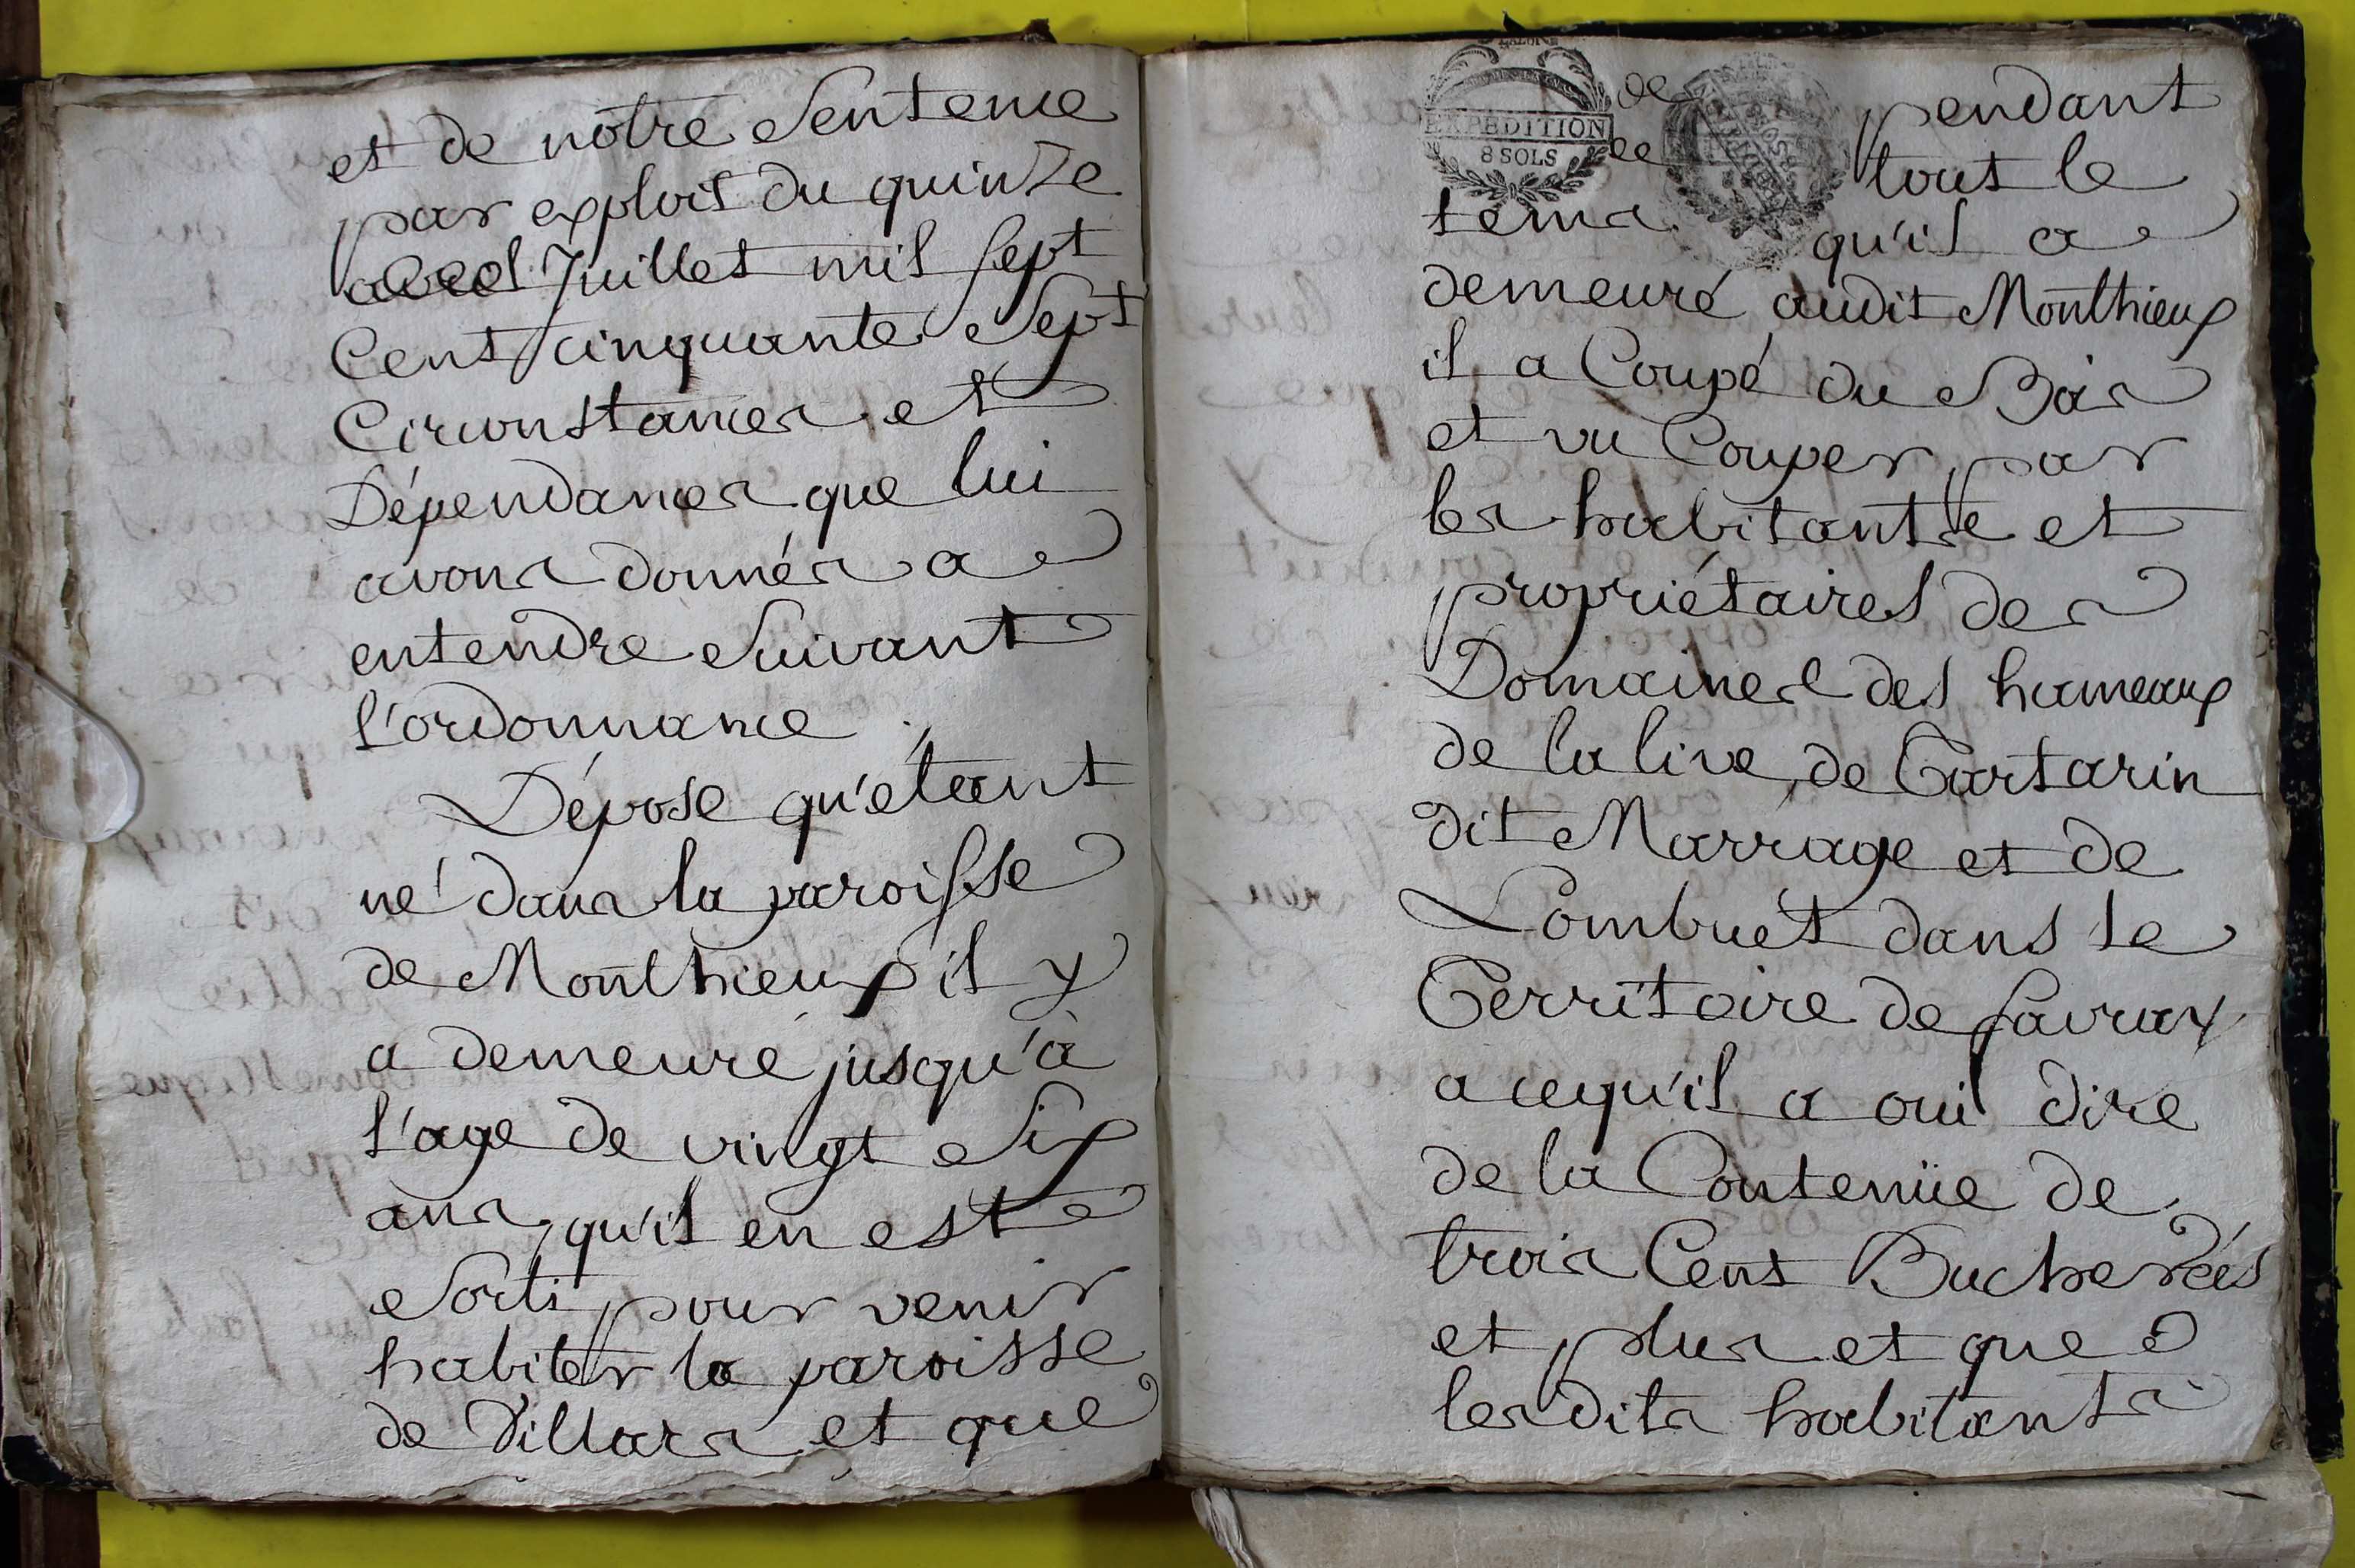 et de notre Sentence
par exploit du quinze
Juillet mil sept
Cent cinquante Sept
Circonstances et
Dépendances que lui
avons donnés a
entendre Suivant
l'ordonnance
Dépose qu'etant
né dans la paroisse
de Monthieux il y
a demeuré jusqu'à
l'age de vingt Six
ans, qu'il en est
Sorti pour venir
habiter la paroisse
de Villars et que
EXPEDITION
8 SOLS
de
pendant
tout le
tems
qu'il a
demeuré audit Monthieux
il a Coupé du Bois
et vu Couper par
les habitants et
propriétaires des
Domaines des hameaux
de la live, de Tartarin
dit Marrage et de
Lombuet dans le
Territoire de Savray
a cequ'il a oui dire
de la Contenüe de
trois Cens Bucherées
et plus et que
lesdits habitants